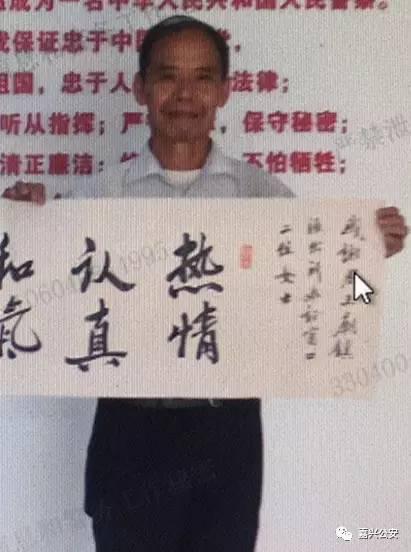 成为一名中华人民共和国人民警察。
保证忠于中
祖国，忠于人 法律；
听从指挥；严 保守秘密；
清正廉洁； 不怕牺牲；
感谢
派出所办证窗口
二位女士
热情
认真
和氣
330400
嘉兴公安